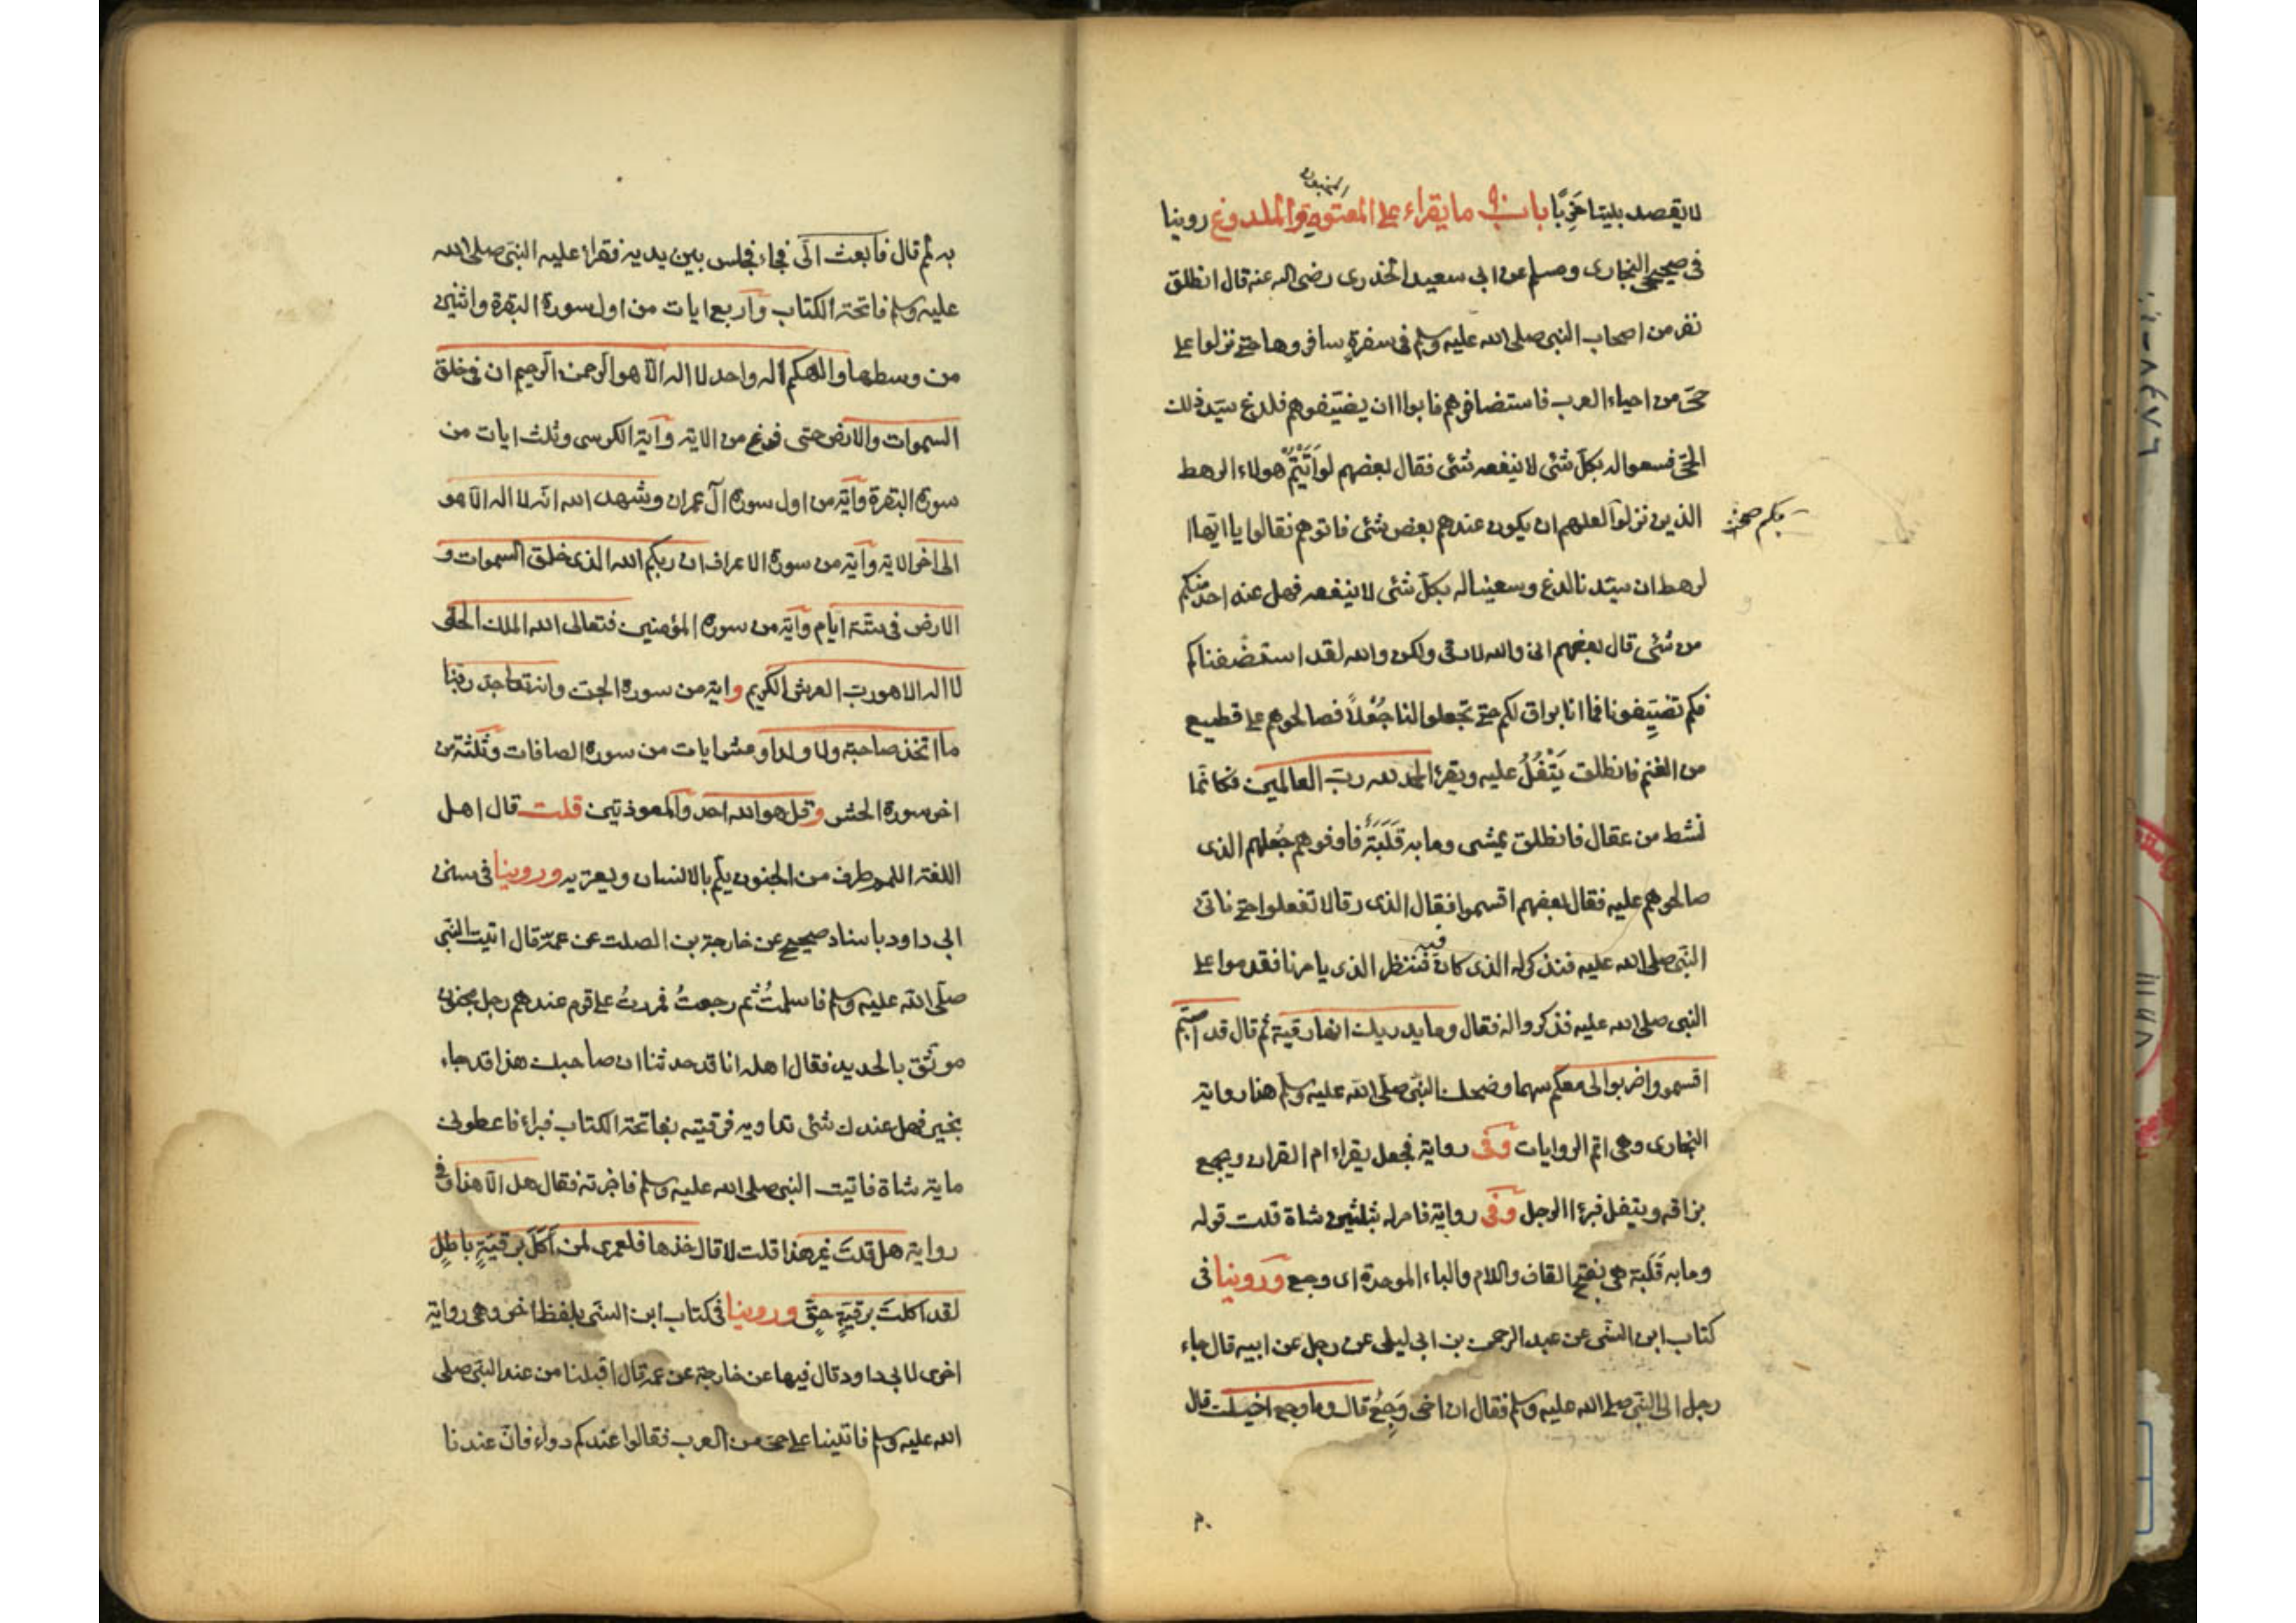 لا يقصد بيتا خربا باب ما يقراء على المعتوه والملدوغ روينا
في صحيحي البخارى ومسلم عن ابي سعيد الخدرى رضى الله عنه قال انطلق
نفر من اصحاب النبي صلى الله عليه وسلم في سفرة سافروها حتى نزلوا على
حي من احياء العرب فاستضافوهم فابوا ان يضيفوهم فلدغ سيد ذلك
الحي فسعوا له بكل شئ لا ينفعه شئ فقال بعضهم لو اتيتم هولاء الرهط
الذين نزلوا لعلهم ان يكون عندهم بعض شئ فاتوهم فقالوا يا ايها ا
لرهط ان سيدنا لدغ وسعينا له بكل شئ لا ينفعه فهل عند احد منكم
من شئ قال بعضهم اني والله لارقى ولكن والله لقد استضفناكم
فلم تضيفونا فما انا براق لكم حتى تجعلوا لنا جُعْلاً فصالحوهم على قطيع
من الغنم فانطلق يَتْفُلُ عليه ويقرء الحمد لله رب العالمين فكانما
نشط من عقال فانطلق يمشى وما به قَلَبَةٌ فاوفوهم جُعلهم الذى
صالحوهم عليه فقال بعضهم اقسموا فقال الذى رقا لا تفعلوا حتى ناتى
النبي صلى الله عليه فنذكر له الذى كان فننظر الذى يامرنا فقدموا على
النبي صلى الله عليه فذكروا له فقال وما يدريك انها رقية ثم قال قد اصبتم
اقسموا واضربوا لى معكم سهما وضحك النبي صلى الله عليه وسلم هذا رواية
البخارى وهى اتم الروايات وفى رواية فجعل يقراء ام القران ويجمع
بزاقه ويتفل فبرء الرجل وفى رواية فامر له بثلثين شاة قلت قوله
وما به قَلَبة هى بفتح القاف واللام والباء الموحدة اى وجع وروينا فى
كتاب ابن السني عن عبد الرحمن بن ابي ليلى عن رجل عن ابيه قال جاء
رجل الى النبي صلى الله عليه وسلم فقال ان اخى وَجِعٌ قال وما وجع اخيك قال
به لمم قال فابعث الىّ فجاء فجلس بين يديه فقراء عليه النبي صلى الله
عليه وسلم فاتحة الكتاب واربع ايات من اول سورة البقرة واثنين
من وسطها والهكم اله واحد لا اله الا هو الرحمن الرحيم ان فى خلق
السموات والارض حتى فرغ من الاية وآية الكرسى وثلث ايات من
سورة البقرة وآية من اول سورة آل عمران وشهد الله انه لا اله الا هو
الى اخر الاية وآية من سورة الاعراف ان ربكم الله الذى خلق السموات و
الارض فى ستة ايام وآية من سورة المؤمنين فتعالى الله الملك الحق
لا اله الا هو رب العرش الكريم واية من سورة الجن وانه تعا جد ربنا
ما اتخذ صاحبة ولا ولدا وعشر ايات من سورة الصافات وثلثة من
اخر سورة الحشر وقل هو الله احد والمعوذتين قلت قال اهل
اللغة اللمم طرف من الجنون يلم بالانسان ويعتريه وروينا فى سنن
ابي داود باسناد صحيح عن خارجة بن الصلت عن عمه قال اتيت النبي
صلى الله عليه وسلم فاسلمتُ ثم رجعتُ فمررتُ على قوم عندهم رجل مجنون
موثق بالحديد فقال اهله انا قد حدثنا ان صاحبك هذا قد جاء
بخير فهل عندك شئ تداويه فرقيته بفاتحة الكتاب فبراء فاعطونى
ماية شاة فاتيت النبي صلى الله عليه وسلم فاخبرته فقال هل الا هذا وفى
رواية هل قلتَ غير هذا قلت لا قال خذها فلعمرى لمن أكَلَ برقيَةٍ باطلٍ
لقد اكلتَ برقيَةٍ حقٍّ وروينا فى كتاب ابن السنى بلفظ اخر وهى رواية
اخرى لابي داود قال فيها عن خارجة عن عمه قال اقبلنا من عند النبي صلى
الله عليه وسلم فاتينا على حى من العرب فقالوا عندكم دواء فان عندنا